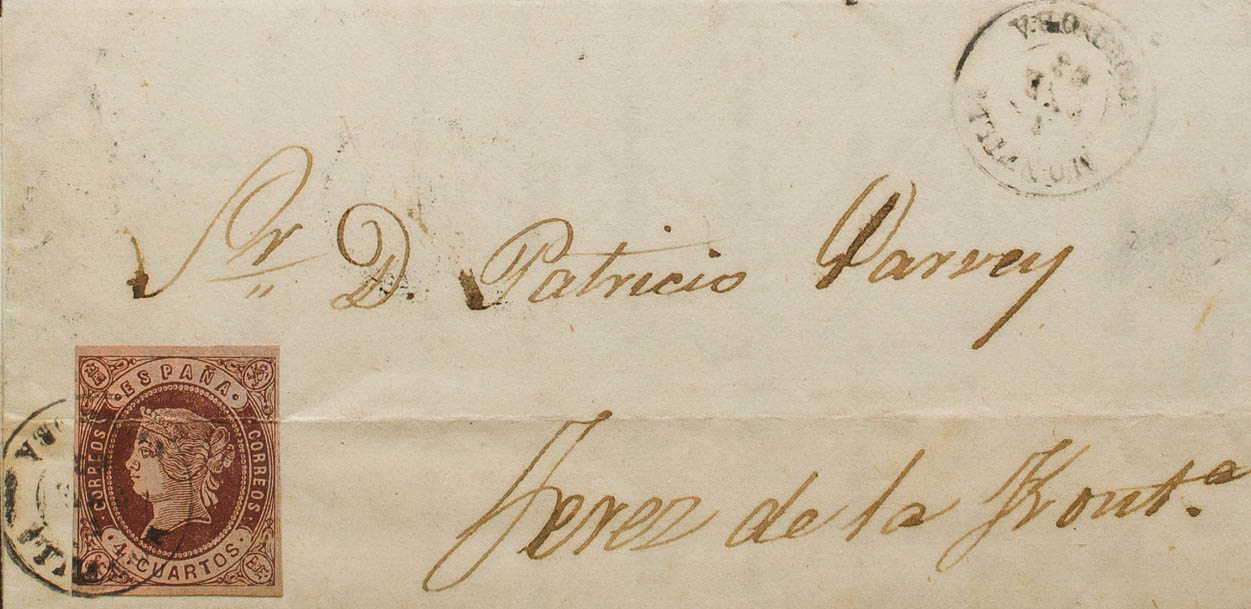 Sr D. Patricio Varvey
Jerez de la Front.a
ESPAÑA
CORREOS
CORREOS
4 CUARTOS
CORDOBA
MONTILLA